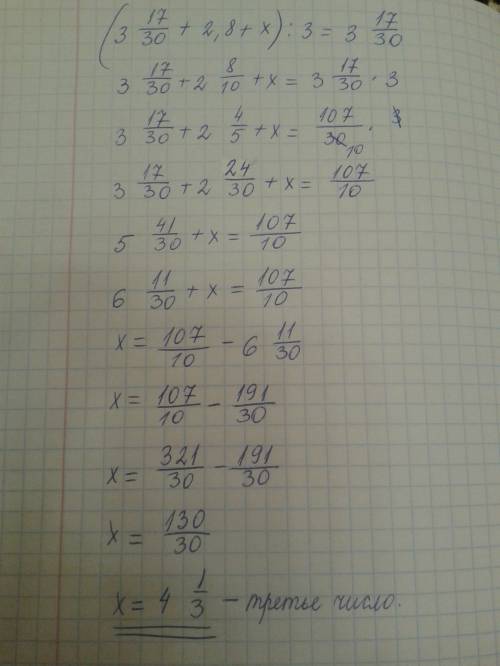 (3 17/30 + 2,8 + x) : 3 = 3 17/30
3 17/30 + 2 8/10 + x = 3 17/30 · 3
3 17/30 + 2 4/5 + x = 107/30 10 · 3
3 17/30 + 2 24/30 + x = 107/10
5 41/30 + x = 107/10
6 11/30 + x = 107/10
x = 107/10 - 6 11/30
x = 107/10 - 191/30
x = 321/30 - 191/30
x = 130/30
x = 4 1/3 - третье число.